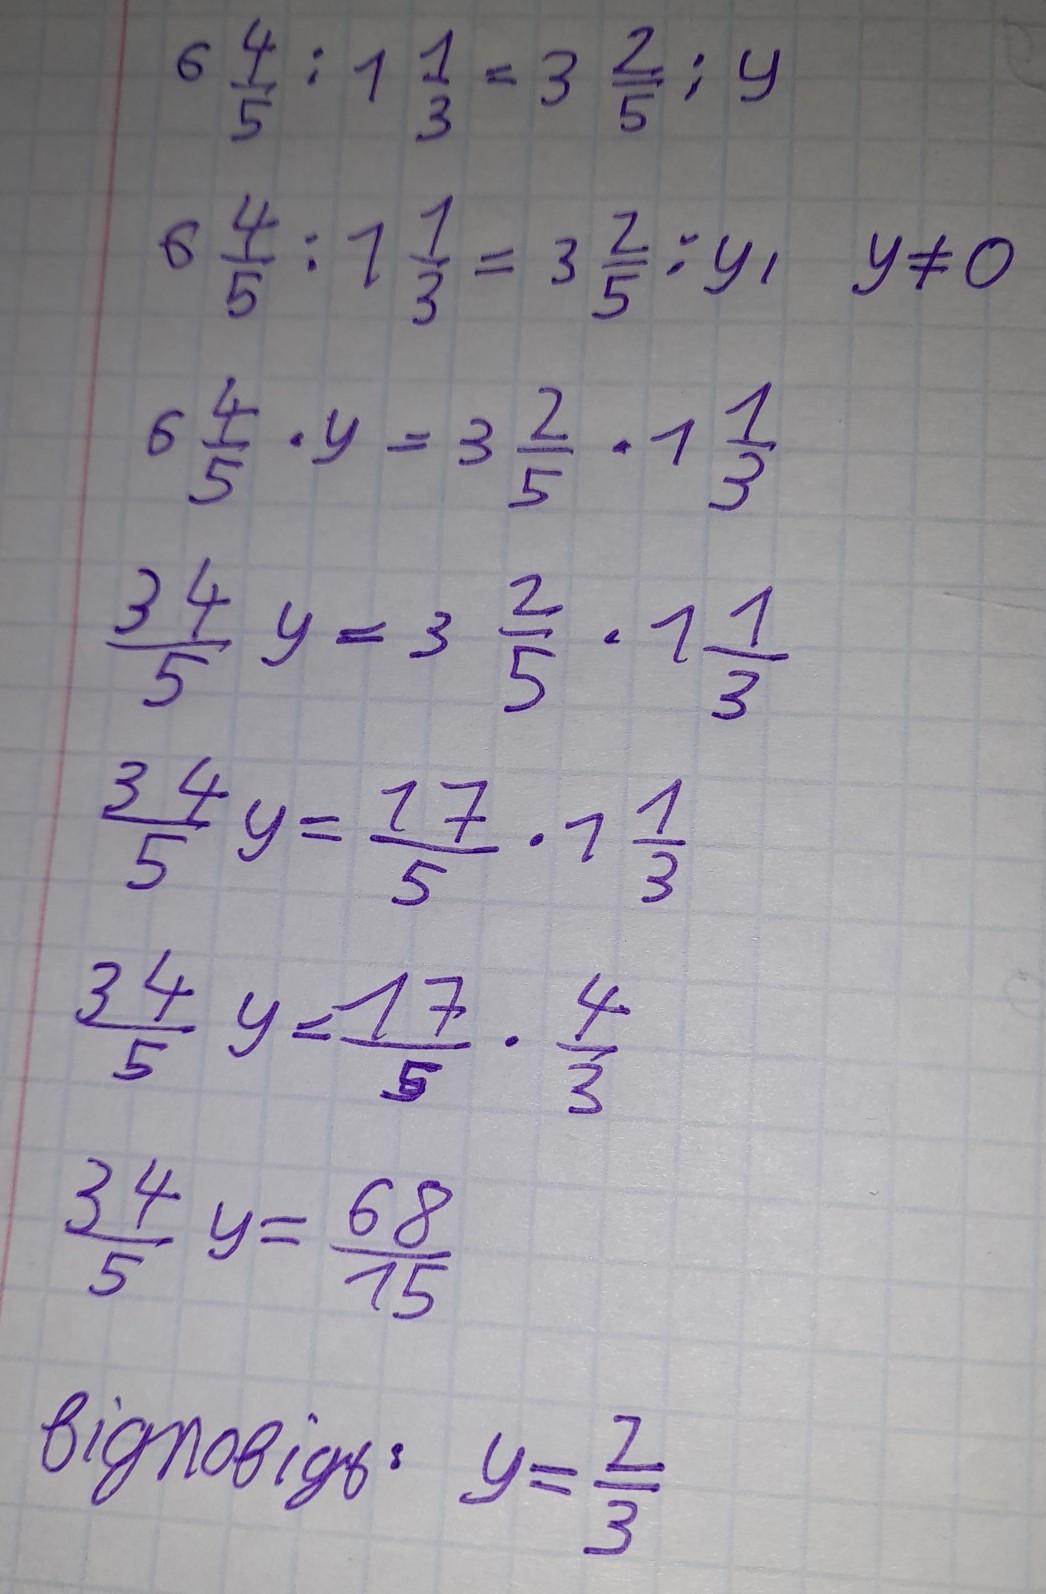 6 4/5 : 1 1/3 = 3 2/5 : y
6 4/5 : 1 1/3 = 3 2/5 : y, y ≠ 0
6 4/5 · y = 3 2/5 · 1 1/3
34/5 y = 3 2/5 · 1 1/3
34/5 y = 17/5 · 1 1/3
34/5 y = 17/5 · 4/3
34/5 y = 68/15
відповідь: y = 2/3